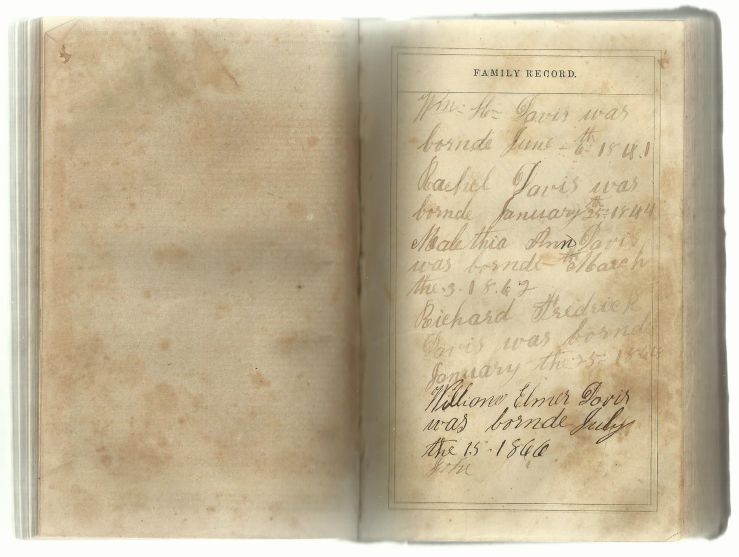 FAMILY RECORD.
Wm. H. Davis was
bornde June 6th 1841
Rachel Davis was
bornde January 25th 1844
Malethia Ann Davis
was bornde March
the 3th 1862
Richard Fredrick
Davis was bornde
January the 25 186
Williame Elmer Davis
was bornde July
the 15 1866